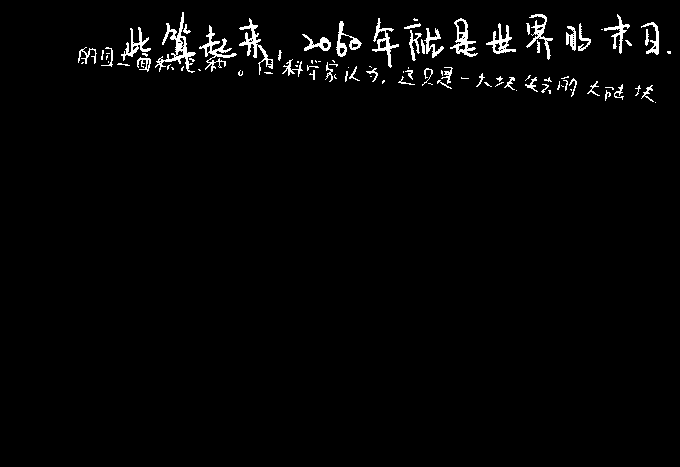 此算起来,2060年就是世界的末日.
的国土面积总和。但科学家认为,这只是一大块失去的大陆块